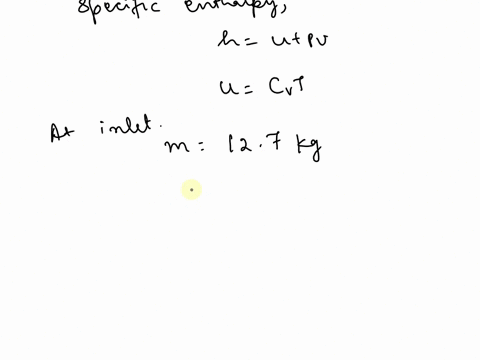 specific enthalpy,
h = u+pv
u = CvT
At inlet.
m = 12.7 kg